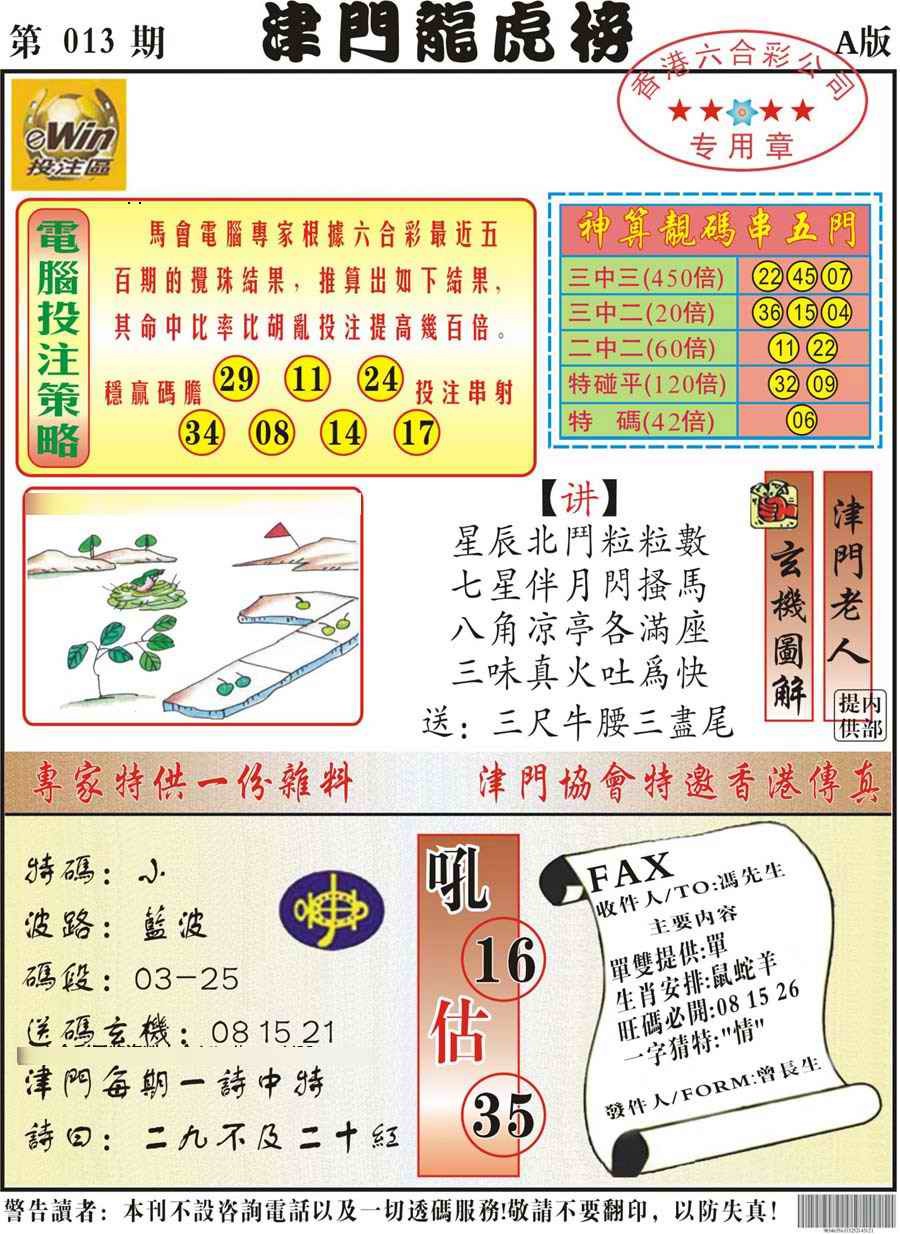 第 013 期
津門龍虎榜
A版
香港六合彩公司
专用章
eWin
投注區
電腦投注策略
馬會電腦專家根據六合彩最近五
百期的攪珠結果，推算出如下結果，
其命中比率比胡亂投注提高幾百倍。
穩贏碼膽 29 11 24 投注串射
34 08 14 17
神算靚碼串五門
三中三(450倍) 22 45 07
三中二(20倍) 36 15 04
二中二(60倍) 11 22
特碰平(120倍) 32 09
特 碼(42倍) 06
【讲】
星辰北鬥粒粒數
七星伴月閃搔馬
八角凉亭各滿座
三味真火吐爲快
送：三尺牛腰三盡尾
玄機圖解
津門老人
内部提供
專家特供一份雜料
津門協會特邀香港傳真
特碼：小
波路：藍波
碼段：03-25
送碼玄機：08 15 21
津門每期一詩中特
詩曰：二九不及二十紅
吼
16
估
35
FAX
收件人/TO:馮先生
主要内容
單雙提供:單
生肖安排:鼠蛇羊
旺碼必開:08 15 26
一字猜特:"情"
發件人/FORM:曾長生
警告讀者：本刊不設咨詢電話以及一切透碼服務!敬請不要翻印，以防失真!